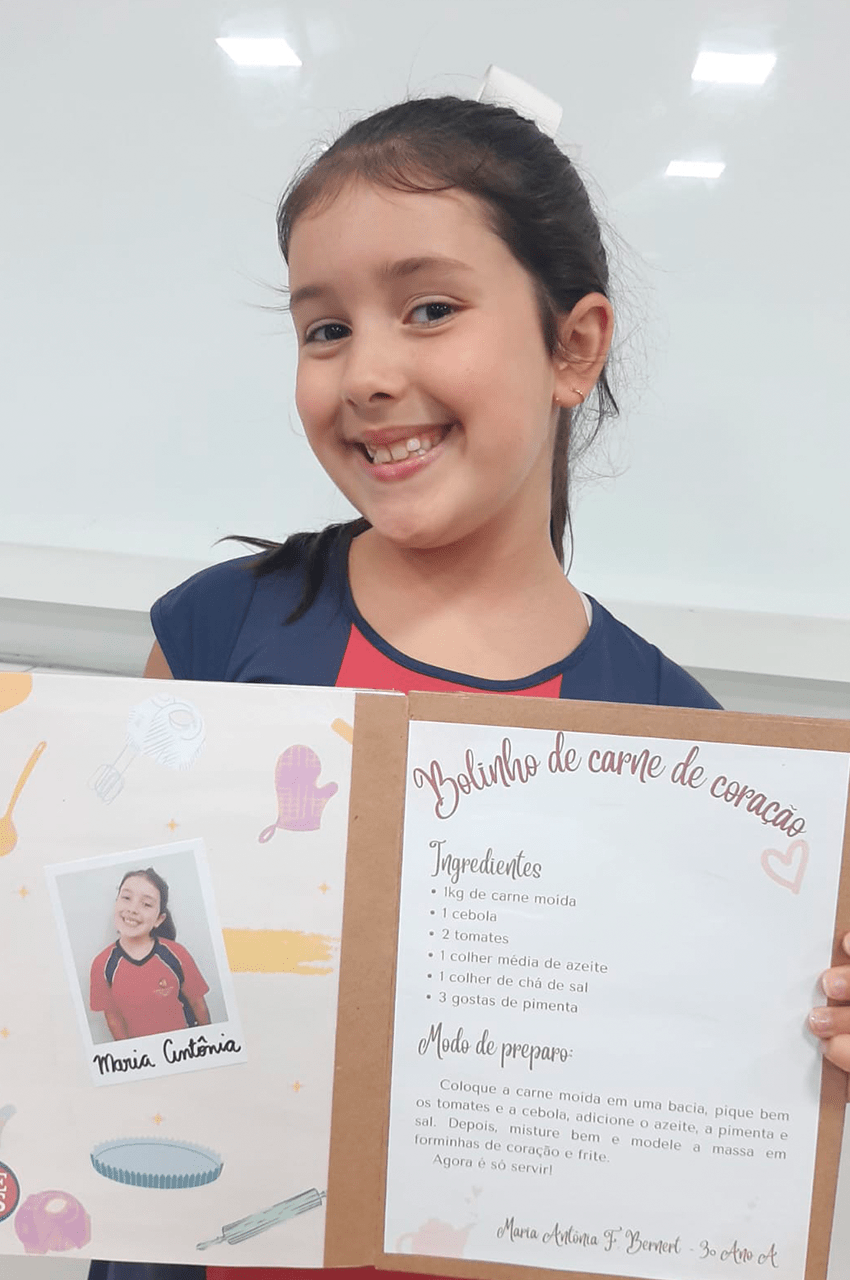 Maria Antônia
Bolinho de carne de coração
Ingredientes
• 1kg de carne moída
• 1 cebola
• 2 tomates
• 1 colher média de azeite
• 1 colher de chá de sal
• 3 gostas de pimenta
Modo de preparo:
Coloque a carne moída em uma bacia, pique bem
os tomates e a cebola, adicione o azeite, a pimenta e
sal. Depois, misture bem e modele a massa em
forminhas de coração e frite.
Agora é só servir!
Maria Antônia F. Bernert - 3º Ano A